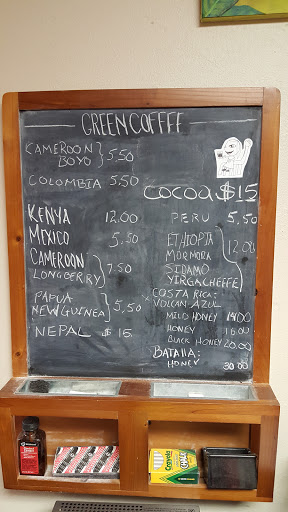 GREEN COFFFF
CAMEROON
BOYO } 5,50
COLOMBIA 5,50
KENYA 12,00
MEXICO 5,50
CAMEROON
LONGBERRY } 7,50
PAPUA
NEW GUINEA } 5,50
NEPAL $ 15
COCOA $15
PERU 5,50
ETHIOPIA
MORMORA
SIDAMO
YIRGACHEFFE } 12,00
COSTA RICA:
VOLCAN AZUL
MILD HONEY 14,00
HONEY 16,00
BLACK HONEY 20,00
BATALLA:
HONEY 30,00
Crayola